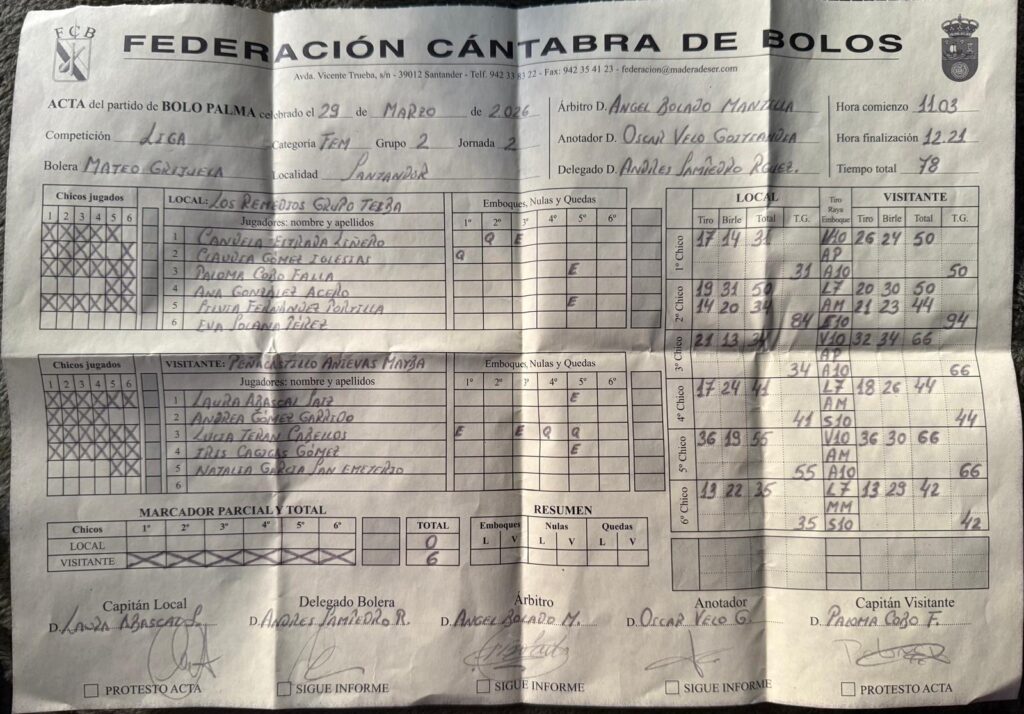 FCB
FEDERACIÓN CÁNTABRA DE BOLOS
Avda. Vicente Trueba, s/n - 39012 Santander - Telf. 942 33 83 22 - Fax: 942 35 41 23 - federacion@maderadeser.com
ACTA del partido de BOLO PALMA celebrado el 29 de MARZO de 2.026
Competición LIGA Categoría FEM Grupo 2 Jornada 2
Bolera MATEO GRIJUELA Localidad SANTANDER
Árbitro D. ANGEL BOLADO MANTILLA
Anotador D. OSCAR VELO GOITIANDIA
Delegado D. ANDRES SAMPEDRO RGUEZ.
Hora comienzo 11.03
Hora finalización 12.21
Tiempo total 78
Chicos jugados LOCAL: LOS REMEDIOS GRUPO TEBA Emboques, Nulas y Quedas
1 2 3 4 5 6 Jugadores: nombre y apellidos 1º 2º 3º 4º 5º 6º
1 CANDELA ESTRADA LIÑERO Q E
2 CLAUDIA GÓMEZ IGLESIAS Q
3 PALOMA COBO FALLA E
4 ANA GONZÁLEZ ACERO
5 SILVIA FERNÁNDEZ PORTILLA E
6 EVA SOLANA PÉREZ
Chicos jugados VISITANTE: PEÑACASTILLO ANIEVAS MAYBA Emboques, Nulas y Quedas
1 2 3 4 5 6 Jugadores: nombre y apellidos 1º 2º 3º 4º 5º 6º
1 LAURA ABASCAL SAIZ E
2 ANDREA GÓMEZ GARRIDO
3 LUCIA TERAN CABELLOS E E Q Q
4 IRIS CAGIGAS GÓMEZ E
5 NATALIA GARCIA SAN EMETERIO
6
LOCAL Tiro Raya Emboque VISITANTE
Tiro Birle Total T.G. Tiro Birle Total T.G.
1º Chico 17 14 31 V10 26 24 50
AP
31 A10 50
2º Chico 19 31 50 L7 20 30 50
14 20 34 AM 21 23 44
84 S10 94
3º Chico 21 13 34 V10 32 34 66
AP
34 A10 66
4º Chico 17 24 41 L7 18 26 44
AM
41 S10 44
5º Chico 36 19 55 V10 36 30 66
AM
55 A10 66
6º Chico 13 22 35 L7 13 29 42
MM
35 S10 42
MARCADOR PARCIAL Y TOTAL
Chicos 1º 2º 3º 4º 5º 6º TOTAL
LOCAL 0
VISITANTE X X X X X X 6
RESUMEN
Emboques Nulas Quedas
L V L V L V
Capitán Local
D. LAURA ABASCAL S.
Delegado Bolera
D. ANDRES SAMPEDRO R.
Árbitro
D. ANGEL BOLADO M.
Anotador
D. OSCAR VELO G.
Capitán Visitante
D. PALOMA COBO F.
PROTESTO ACTA
SIGUE INFORME
SIGUE INFORME
SIGUE INFORME
PROTESTO ACTA